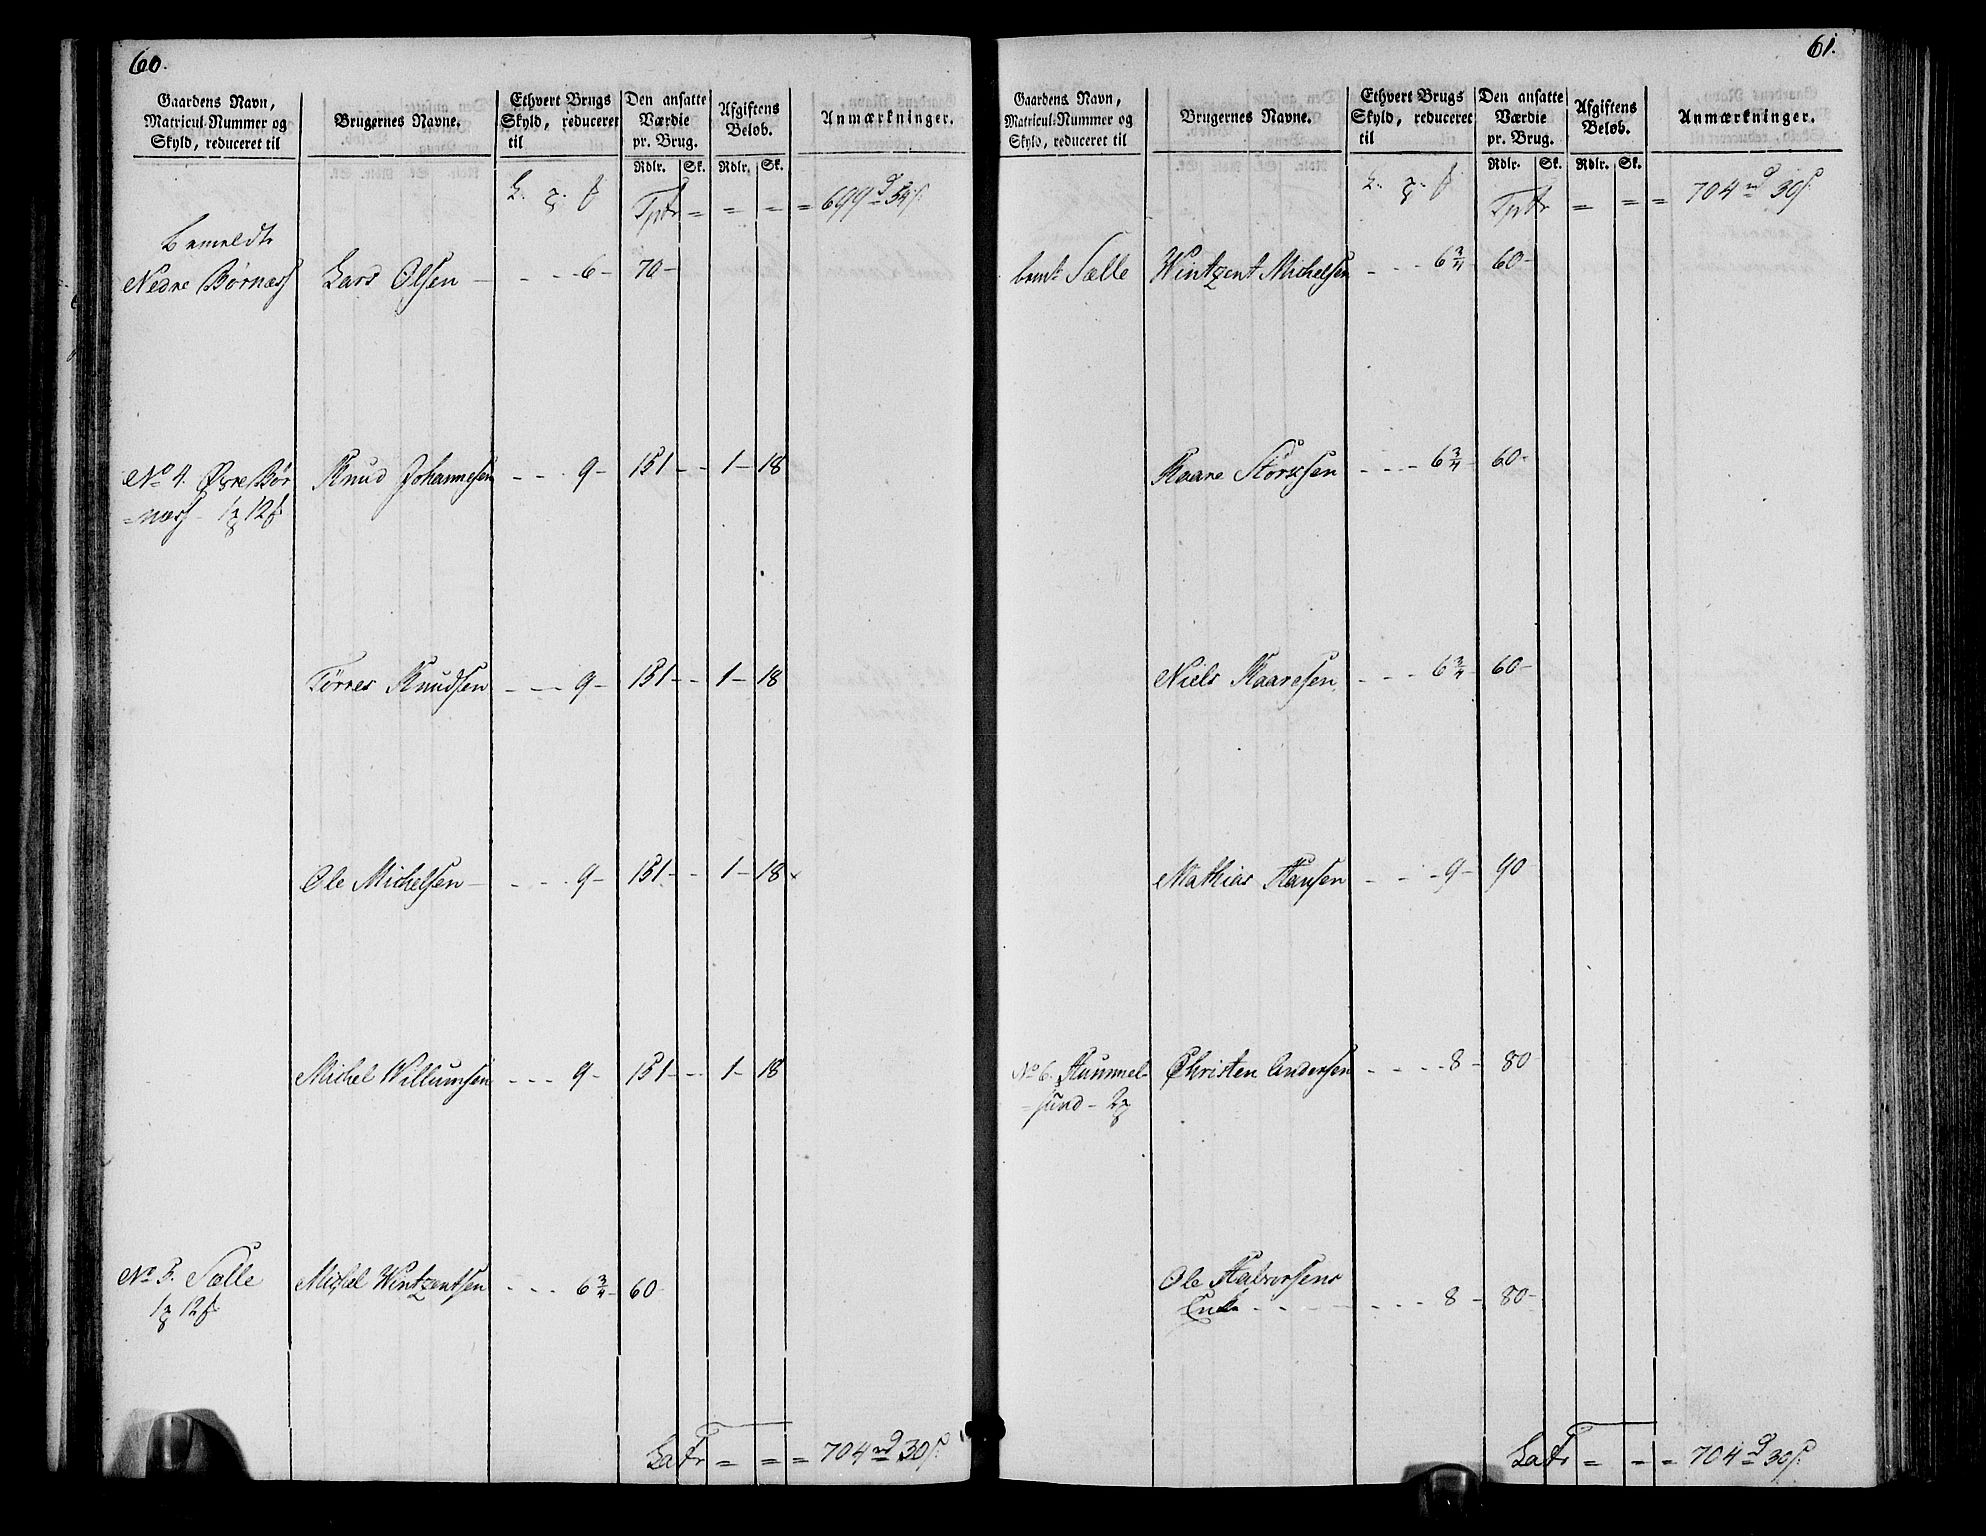 60.
Gaardens Navn, Matricul-Nummer og Skyld, reduceret til
Brugernes Navne.
Ethvert Brugs Skyld, reduceret til
Den ansatte Værdie pr. Brug.
Afgiftens Beløb.
Anmærkninger.
Rdlr. Sk. Rdlr. Sk.
Tptr = = = = 699 34
Bemeldte
Nedre Børnæss Lars Olsen - - - 6 - 70 -
No 4. Øvre Bør Knud Johannesen - - - 9 - 151 - - 1 - 18
= næss - 1 12
Tørres Knudsen - - - 9 - 151 - - 1 - 18
Ole Michelsen - - - - 9 - 151 - - 1 - 18
Michel Willumsen - - - 9 - 151 - - 1 - 18
No 5. Sælle Michel Wintzentsen - - - 6 3/4 - 60 -
1 12
La Tr = = = 704 30
61.
Gaardens Navn, Matricul-Nummer og Skyld, reduceret til
Brugernes Navne.
Ethvert Brugs Skyld, reduceret til
Den ansatte Værdie pr. Brug.
Afgiftens Beløb.
Anmærkninger.
Rdlr. Sk. Rdlr. Sk.
Tptr = = = 704 30
bemt Sælle Wintzent Michelsen - - - 6 3/4 - 60 -
Kaare Storssen - - - - 6 3/4 - 60 -
Niels Kaaresen - - - 6 3/4 - 60 -
Mathias Hansen - - - 9 - 90
No 6. Hummel- Christen Andersen - - - - 8 - 80
= sund - 2
Ole Halvorsens
Enke - - - - - - - 8 - 80 -
La Tr = = = 704 30